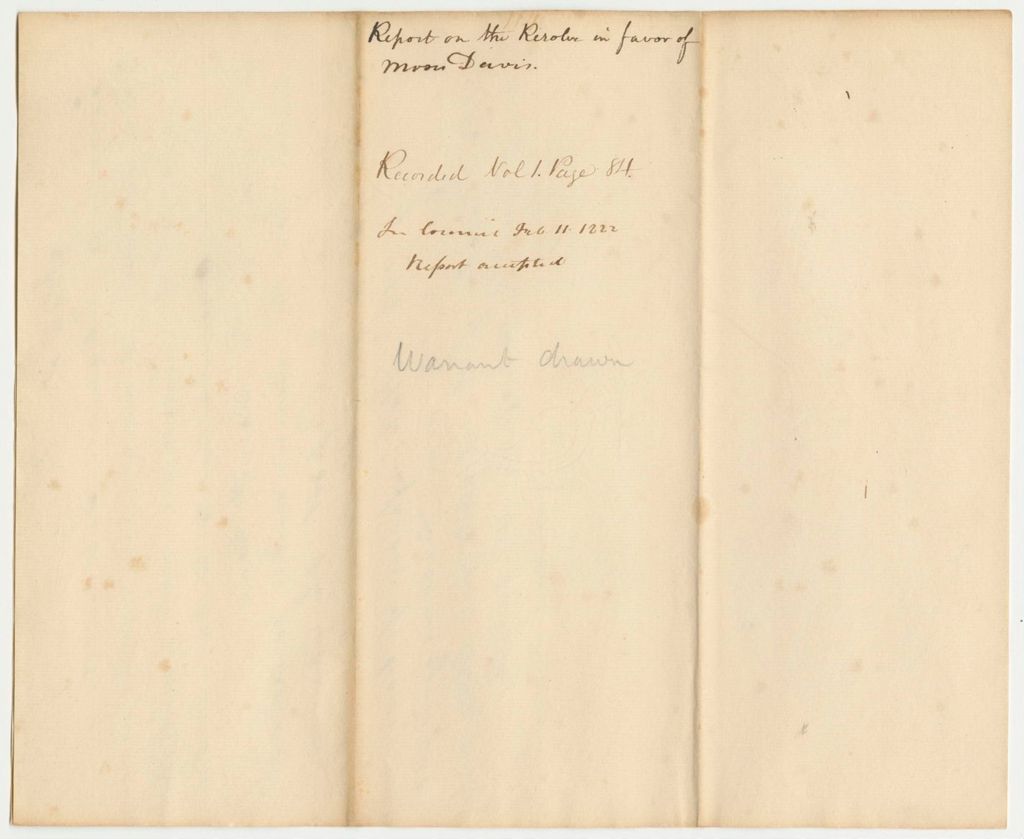 Report on the Resolve in favor of
Moses Davis.
Recorded Vol 1. Page 84.
In Council Feb 11 1822
Report accepted
Warrant drawn